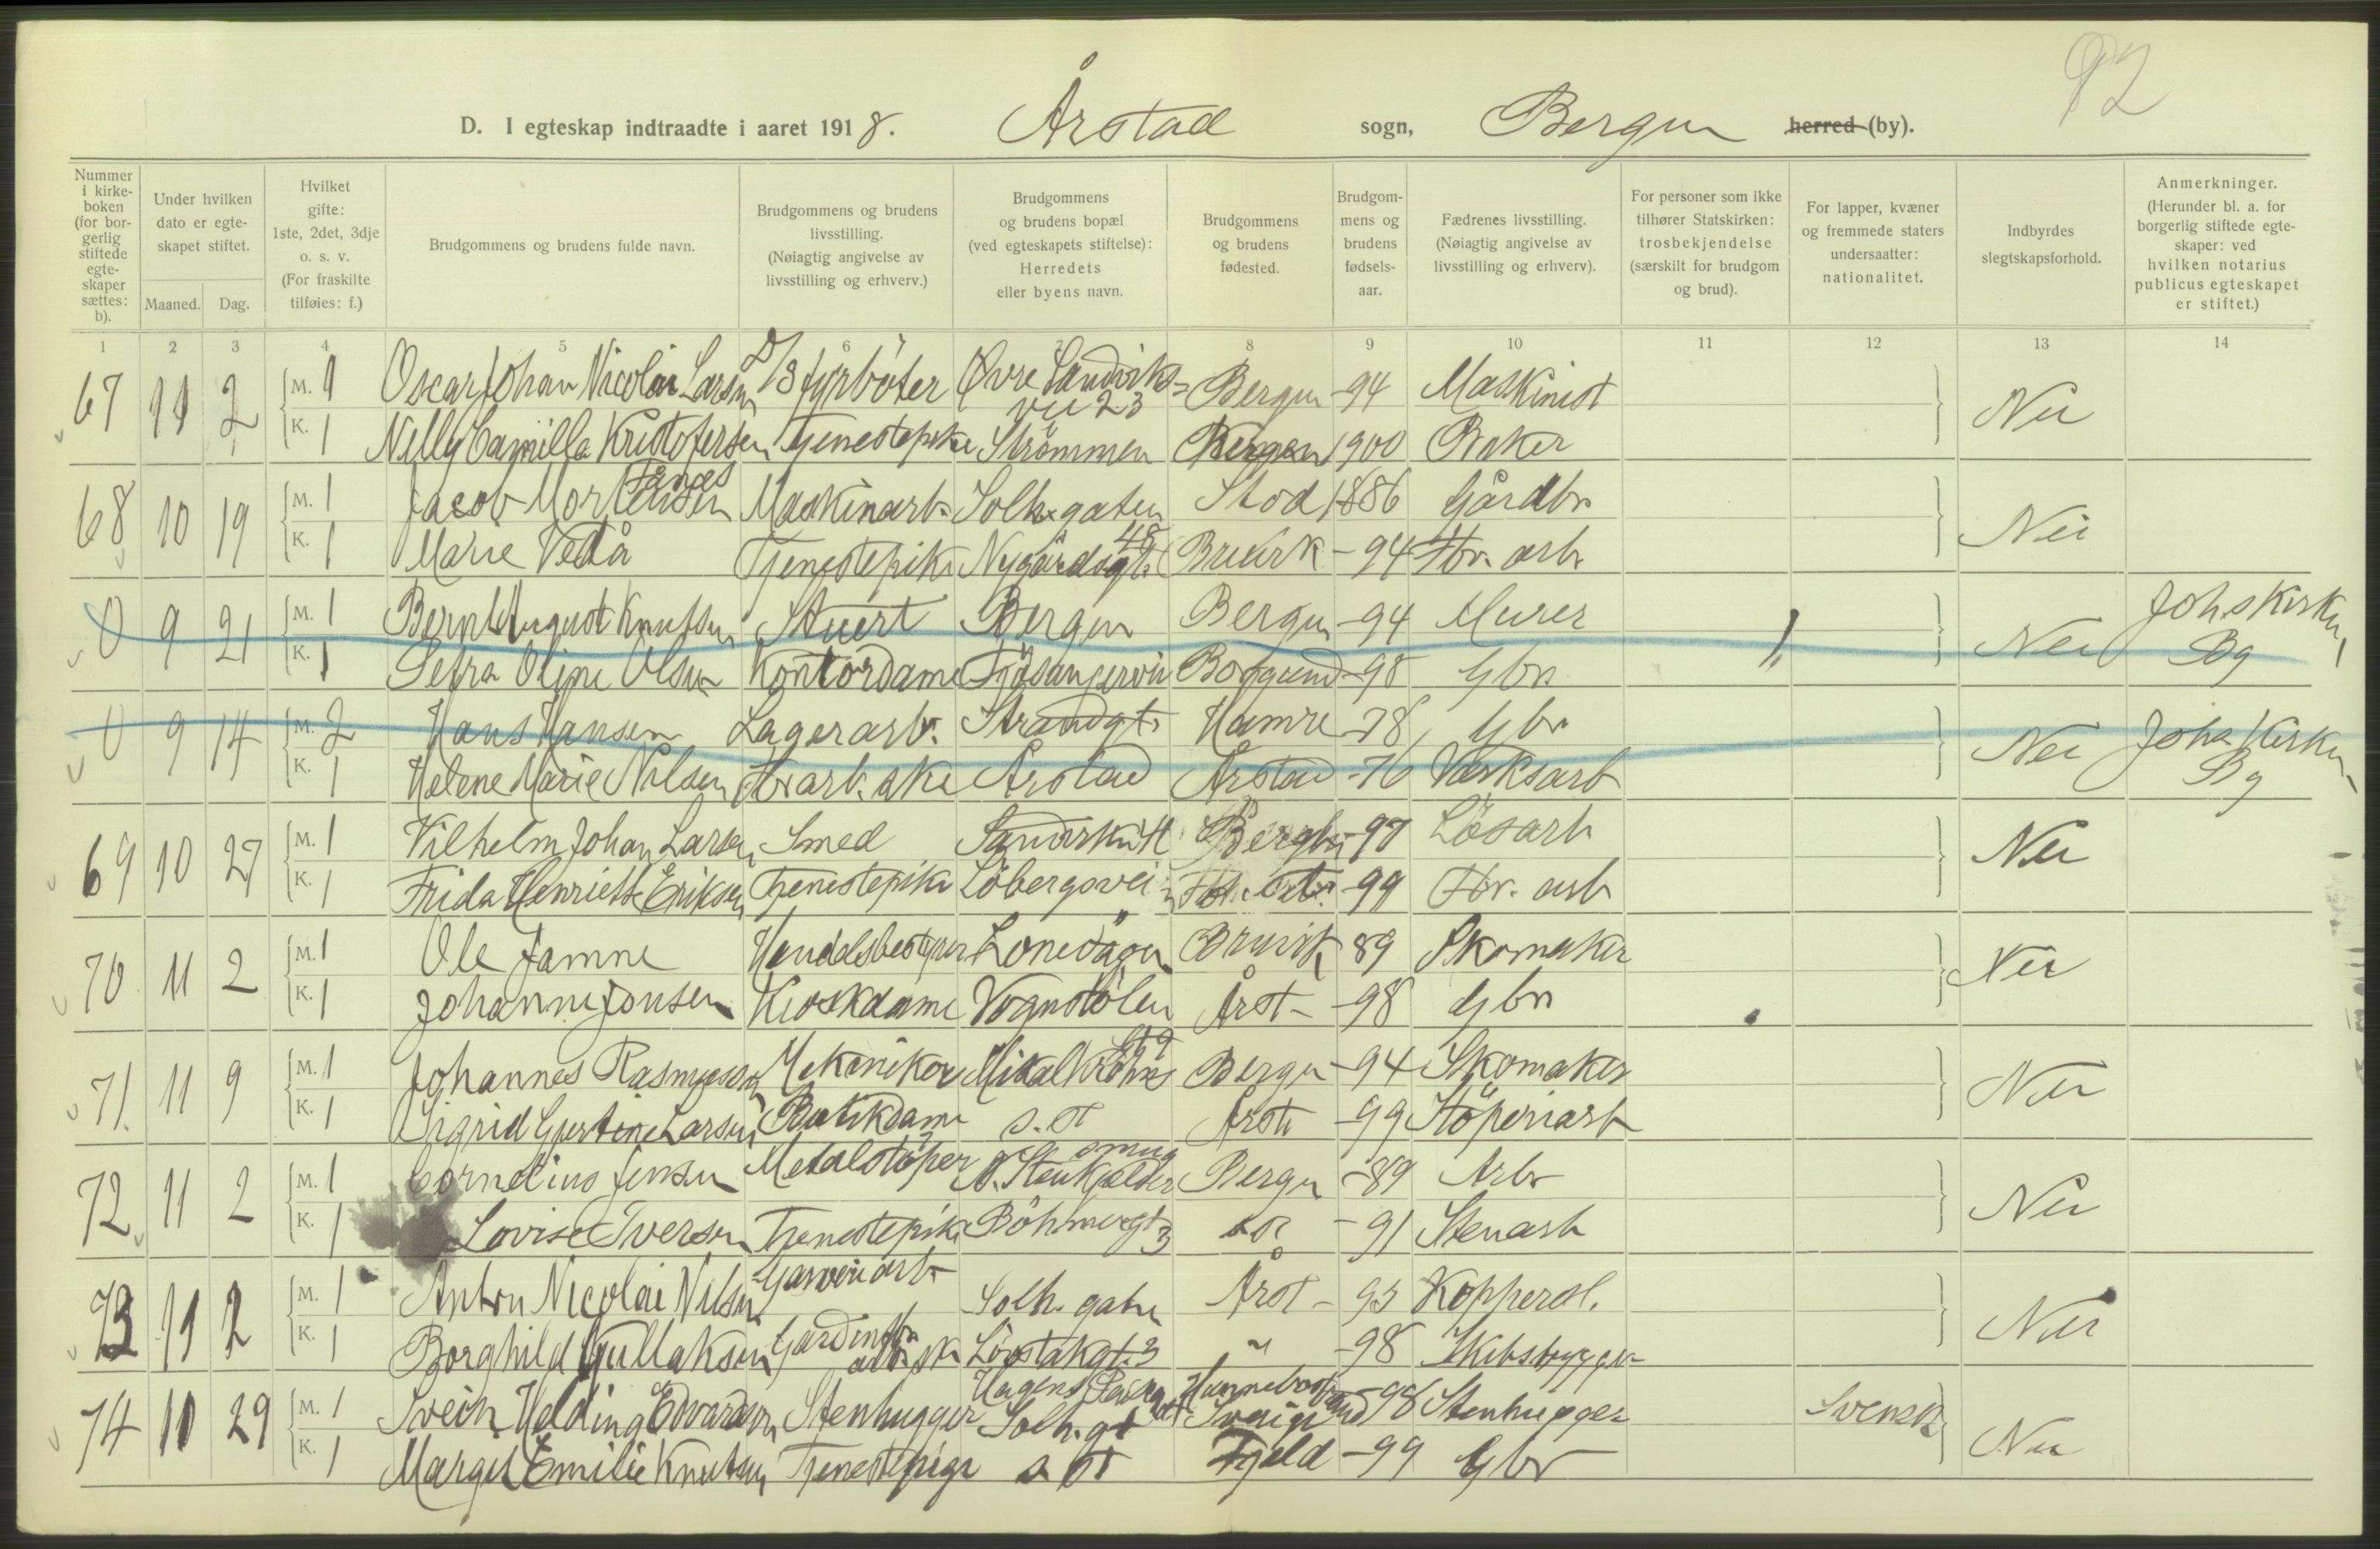 92
D. I egteskap indtraadte i aaret 1918. Årstad sogn, Bergen herred (by).
Nummer i kirke-boken (for bor-gerlig stiftede egte-skaper sættes: b).
Under hvilken dato er egte-skapet stiftet.
Maaned. Dag.
Hvilket gifte: 1ste, 2det, 3dje o. s. v. (For fraskilte tilføies: f.)
Brudgommens og brudens fulde navn.
Brudgommens og brudens livsstilling. (Nøiagtig angivelse av livsstilling og erhverv.)
Brudgommens og brudens bopæl (ved egteskapets stiftelse): Herredets eller byens navn.
Brudgommens og brudens fødested.
Brudgom-mens og brudens fødsels-aar.
Fædrenes livsstilling. (Nøiagtig angivelse av livsstilling og erhverv).
For personer som ikke tilhører Statskirken: trosbekjendelse (særskilt for brudgom og brud).
For lapper, kvæner og fremmede staters undersaatter: nationalitet.
Indbyrdes slegtskapsforhold.
Anmerkninger. (Herunder bl. a. for borgerlig stiftede egte-skaper: ved hvilken notarius publicus egteskapet er stiftet.)
1 2 3 4 5 6 7 8 9 10 11 12 13 14
67 11 2 M. 1 Oscar Johan Nicolai Larsen D/S fyrböter Øvre Sandviks-vei 23 Bergen -94 Maskinist Nei
K. 1 Nelly Camilla Kristofersen Tjenestepike Strömmen Bergen 1900 Baker
68 10 19 M. 1 Jacob Mortensen Maskinarb. Solh. gaten 48 Stod 1886 Gårdbr. Nei
K. 1 Marie Vedå Tjenestepike Nygårdsgt. Bruvik -94 Fbr. arb
0 9 21 M. 1 Bernt August Knutsen Stuert Bergen Bergen -94 Murer Nei Johs Kirken Bg
K. 1 Petra Oline Olsen Kontordame Fjösangervei Borgund -98 Gbr.
0 9 14 M. 2 Hans Hansen Lagerarb. Strandgt. Hamre -78 Gbr. Nei Johs Kirken Bg
K. 1 Helene Marie Nilsen Fbr arb. ske Årstad Årstad -76 Værksarb
69 10 27 M. 1 Vilhelm Johan Larsen Smed Bergen -97 Lösarb Nei
K. 1 Frida Henriette Eriksen Tjenestepike Löbergsvei -99 Fbr. arb
70 11 2 M. 1 Ole Jamne Handelsbestyrer Lonevågen Bruvik 89 Skomaker Nei
K. 1 Johanne Jonsen Kioskdame Vognstölen Årst- -98 Gbr
71 11 9 M. 1 Johannes Rasmussen Mekaniker Mikal Krohns gt 9 Bergen -94 Skomaker Nei
K. 1 Sigrid Gjertine Larsen Butikdame s. st Årst -99 Stöperiarb
72 11 2 M. 1 Cornelius Jensen Metalstöper N. Stenkjelder smug Bergen -89 Arbr Nei
K. 1 Lovise Iversen Tjenestepike Böhmergt 3 s st -91 Stenarb
73 11 2 M. 1 Anton Nicolai Nilsen Garveriarb Solh. gaten Årst- 93 Koppersl. Nei
K. 1 Borghild Gullaksen Gardinfbr arb.sk Lövstakgt. 3 " -98 Skibsbygger
74 11 29 M. 1 Svein Helding Edvardsen Stenhugger Solh. gt Hunnebostrand Sverige 98 Stenhugger Svensk Nei
K. 1 Margit Emilie Knutsen Tjenestepige s st Fjeld -99 Gbr